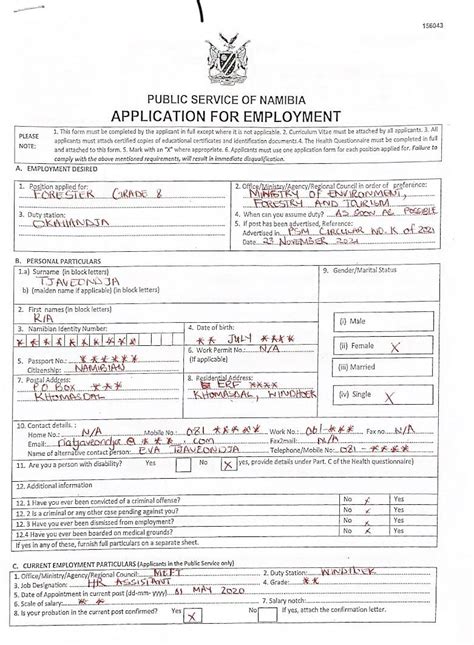 156043
PUBLIC SERVICE OF NAMIBIA
APPLICATION FOR EMPLOYMENT
PLEASE NOTE:
1. This form must be completed by the applicant in full except where it is not applicable. 2. Curriculum Vitae must be attached by all applicants. 3. All
applicants must attach certified copies of educational certificates and identification documents. 4. The Health Questionnaire must be completed in full
and attached to this form. 5. Mark with an "X" where appropriate. 6. Applicants must use one application form for each position applied for. Failure to
comply with the above mentioned requirements, will result in immediate disqualification.
A. EMPLOYMENT DESIRED
1. Position applied for:
FORESTER GRADE 8
2. Office/Ministry/Agency/Regional Council in order of preference:
MINISTRY OF ENVIRONMENT,
FORESTRY AND TOURISM
3. Duty station:
OKAHANDJA
4. When can you assume duty? AS SOON AS POSSIBLE
5. If post has been advertised, Reference:
Advertised in. PSM CIRCULAR NO. K OF 2021
Date 23 NOVEMBER 2021
B. PERSONAL PARTICULARS
1.a) Surname (in block letters)
TJAVEONDJA
b) (maiden name if applicable) (in block letters)
2. First names (in block letters)
RIA
3. Namibian Identity Number:
* * * * * * * * * * *
4. Date of birth:
** JULY ****
5. Passport No.: *****
Citizenship: NAMIBIAN
6. Work Permit No.: N/A
(If applicable)
7. Postal Address:
PO BOX ***
KHOMASDAL
8. Residential Address:
ERF ****
KHOMASDAL, WINDHOEK
9. Gender/Marital Status
(i) Male
(ii) Female X
(iii) Married
(iv) Single X
10. Contact details:
Home No.: N/A Mobile No.: 081 **** Work No.: 061-*** Fax no N/A
Email: riatjaveondja@***.com Fax2mail: N/A
Name of alternative contact person: EVA TJAVEONDJA Telephone/Mobile No.: 081-****
11. Are you a person with disability? Yes No X yes, provide details under Part. C of the Health questionnaire)
12. Additional information
12.1 Have you ever been convicted of a criminal offense? No X Yes
12.2 Is a criminal or any other case pending against you? No X Yes
12.3 Have you ever been dismissed from employment? No X Yes
12.4 Have you ever been boarded on medical grounds? No X Yes
If yes in any of these, furnish full particulars on a separate sheet.
C. CURRENT EMPLOYMENT PARTICULARS (Applicants in the Public Service only)
1. Office/Ministry/Agency/Regional Council: MEFT
2. Duty Station: WINDHOEK
3. Job Designation: HR ASSISTANT
4. Grade: **
5. Date of Appointment in current post (dd-mm-yyyy) 01 MAY 2020
6. Scale of salary: **
7. Salary notch:
8. Is your probation in the current post confirmed? Yes X No If yes, attach the confirmation letter.